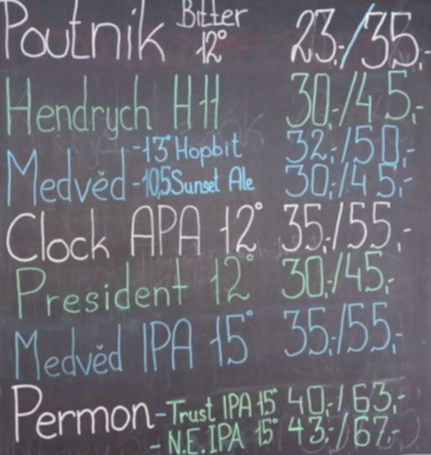 Poutnik Bitter 12° 23,-/35,-
Hendrych H11 30,-/45,-
Medvěd -13° Hopbit 32,-/50,-
-10,5 Sunset Ale 30,-/45,-
Clock APA 12° 35,-/55,-
President 12° 30,-/45,-
Medvěd IPA 15° 35,-/55,-
Permon -Trust IPA 15° 40,-/63,-
-N.E.IPA 15° 43,-/67,-